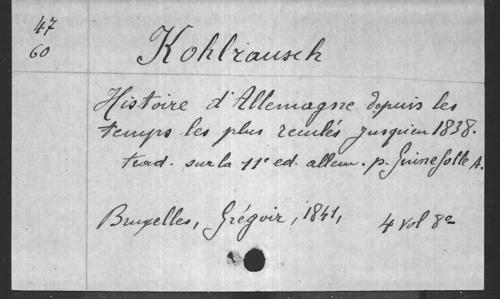 47
60
Kohlrausch
Histoire d'Allemagne depuis les
temps les plus reculés jusqu'en 1838.
trad. sur la 11e ed. allem. p. Guinefolle A.
Bruxelles, Grégoir, 1841, 4 vol 8º